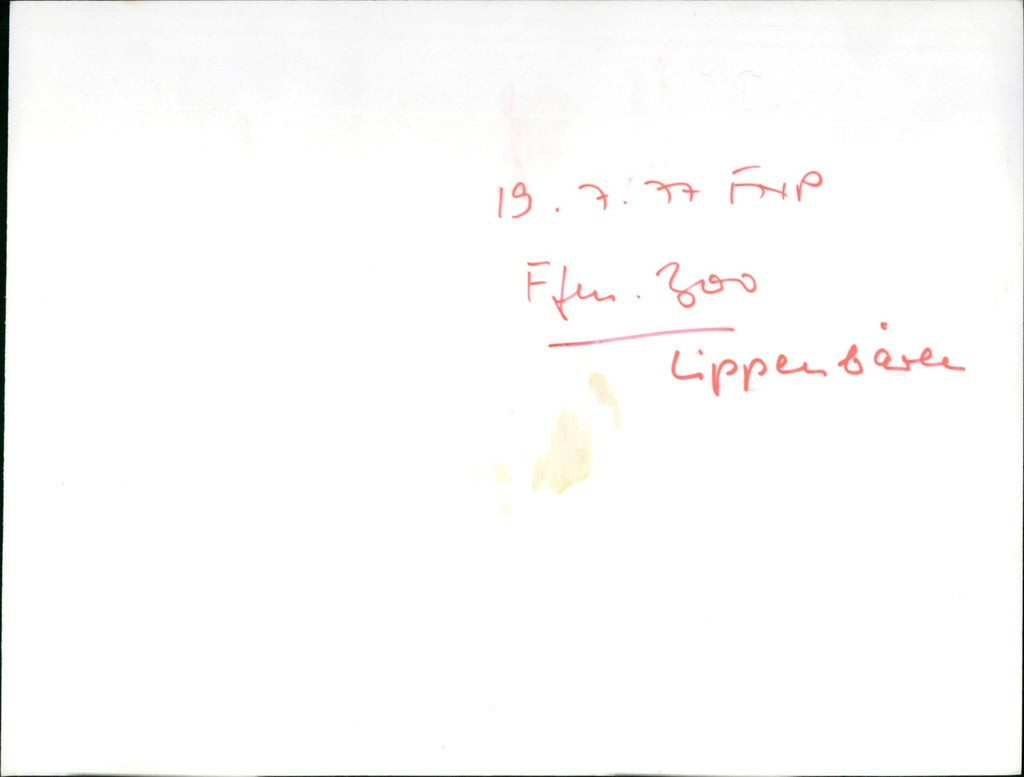 19.7.77 FNP
Ffm. Zoo
Lippenbären